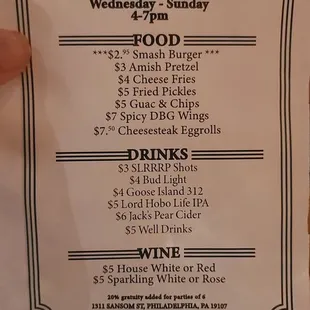 Wednesday - Sunday
4-7pm
FOOD
***$2.95 Smash Burger ***
$3 Amish Pretzel
$4 Cheese Fries
$5 Fried Pickles
$5 Guac & Chips
$7 Spicy DBG Wings
$7.50 Cheesesteak Eggrolls
DRINKS
$3 SLRRRP Shots
$4 Bud Light
$4 Goose Island 312
$5 Lord Hobo Life IPA
$6 Jack's Pear Cider
$5 Well Drinks
WINE
$5 House White or Red
$5 Sparkling White or Rose
20% gratuity added for parties of 6
1311 SANSOM ST, PHILADELPHIA, PA 19107